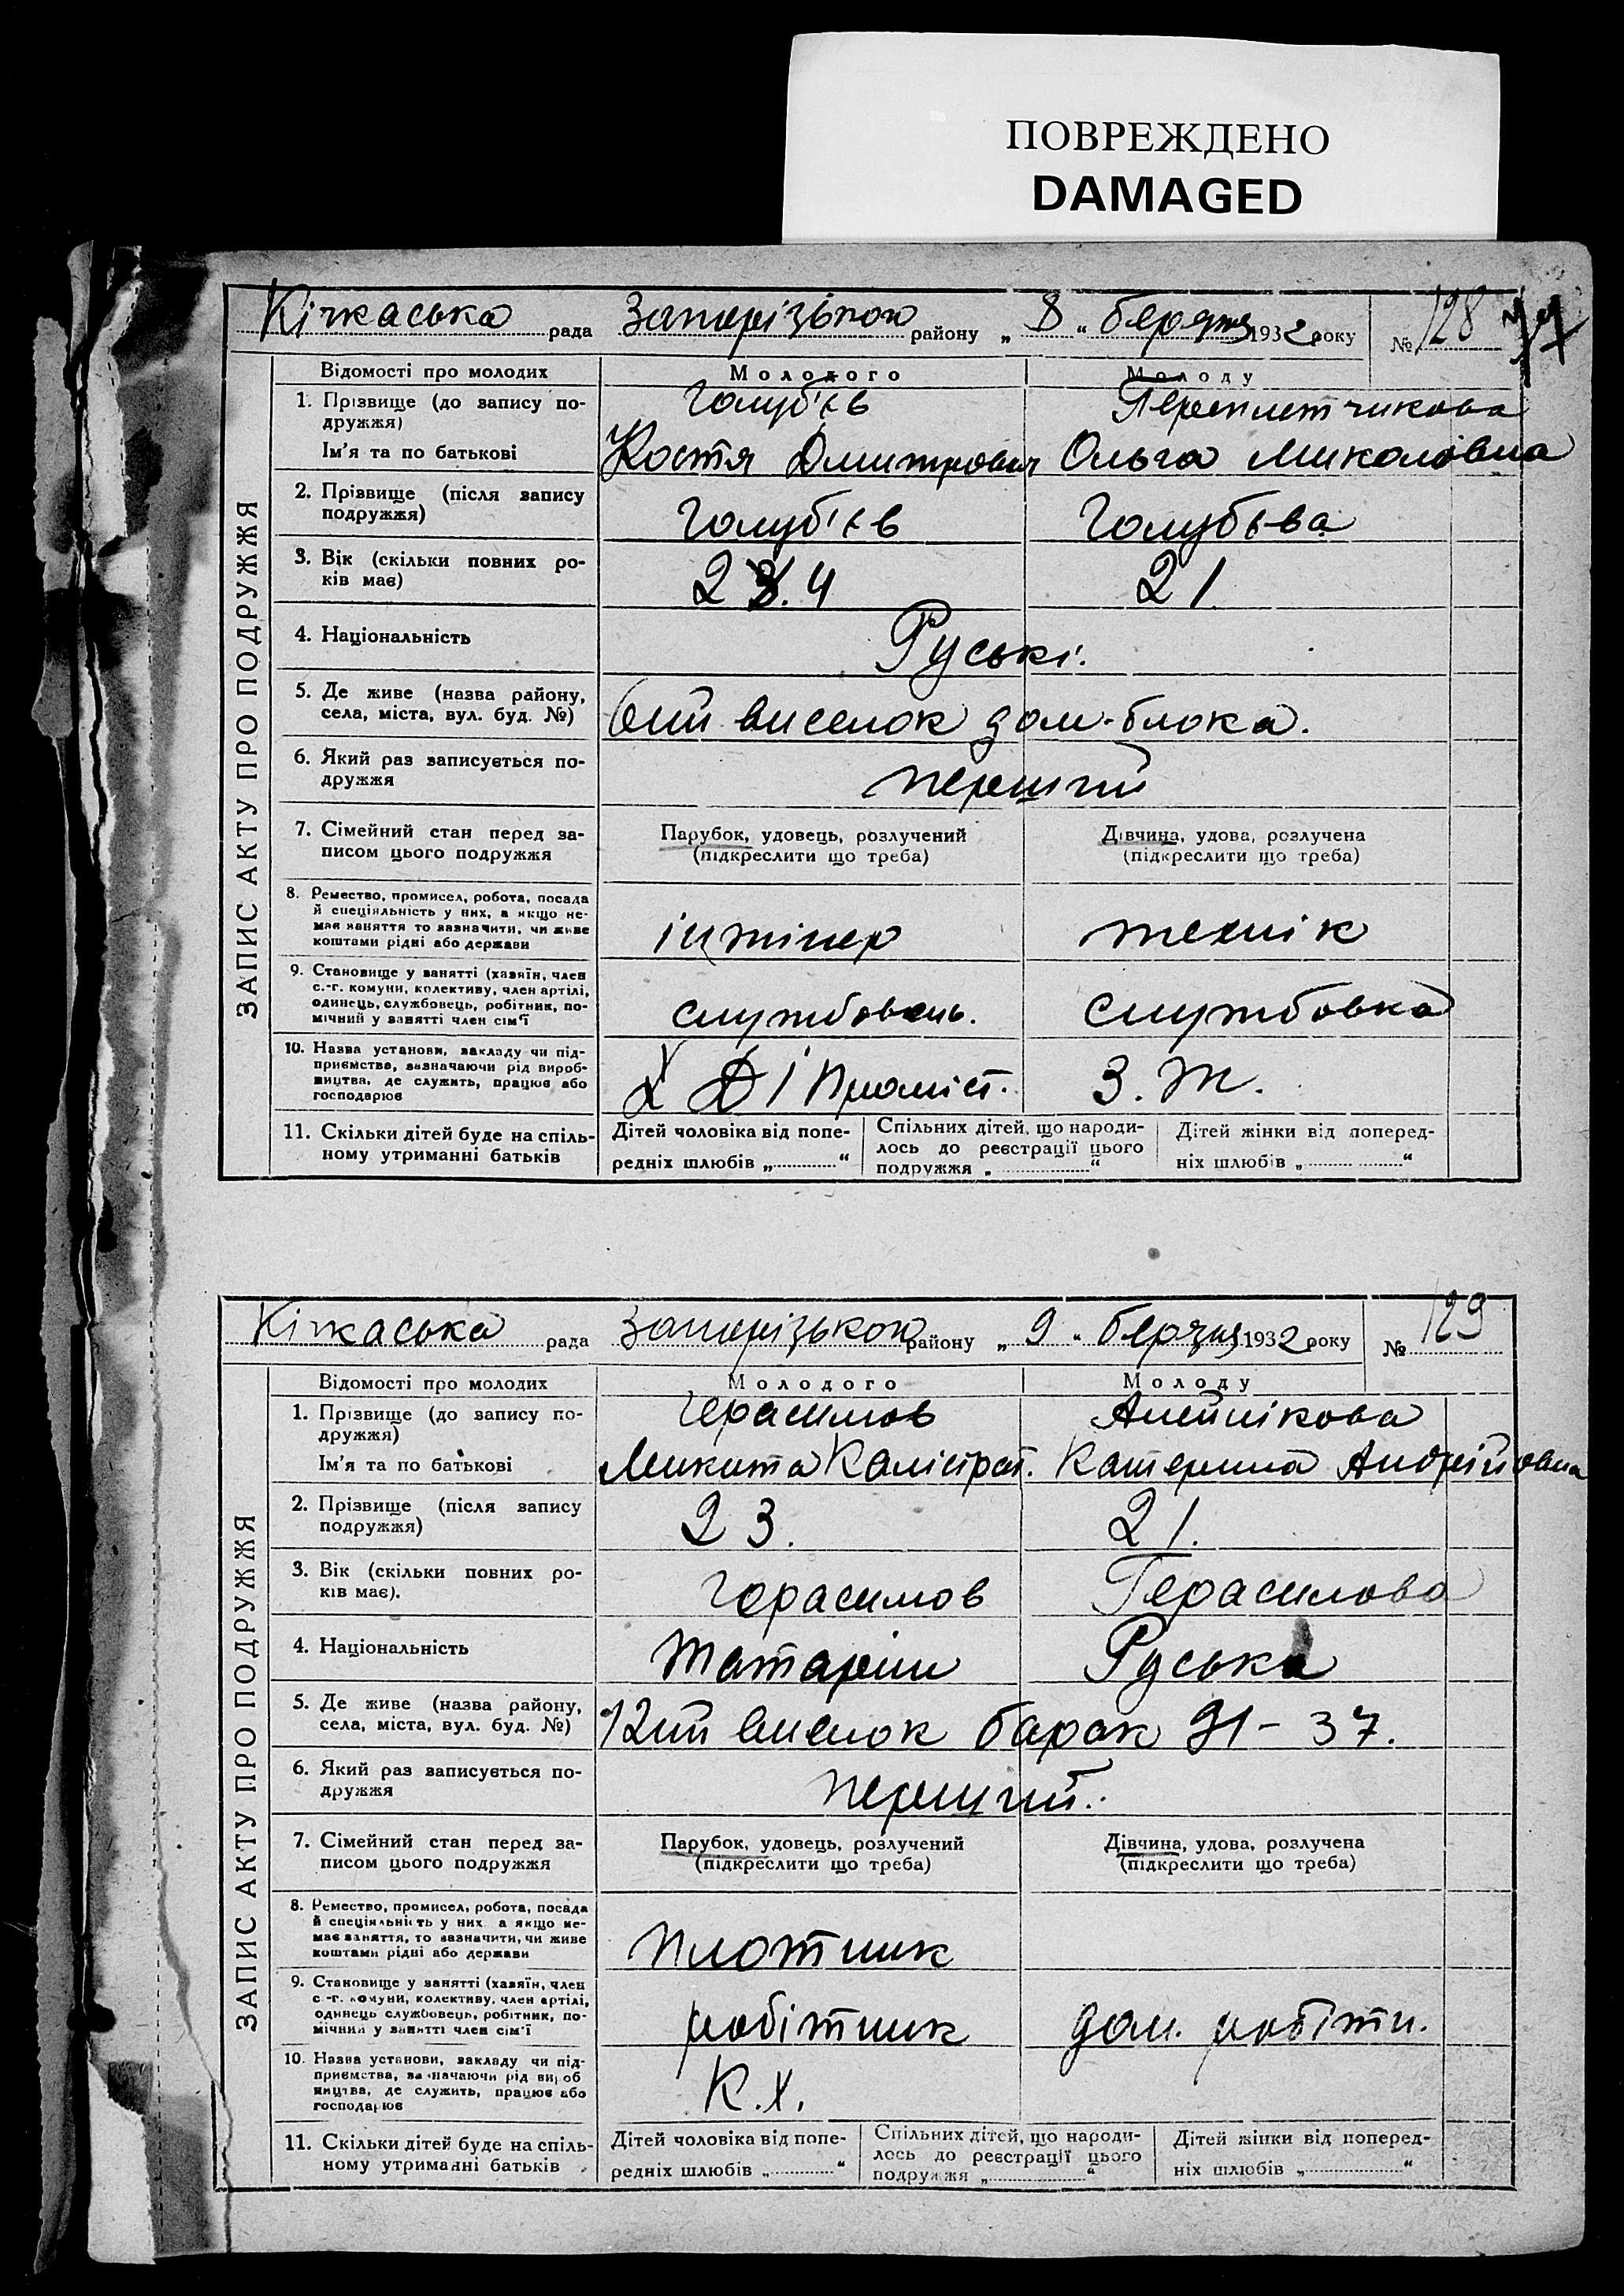 ПОВРЕЖДЕНО
DAMAGED
Кічкаська рада Запорізького району „ 8 “ березня 1932 року № 128
ЗАПИС АКТУ ПРО ПОДРУЖЖЯ
Відомості про молодих Молодого Молоду
1. Прізвище (до запису по- Голуб'єв Переплетчикова
дружжя)
Ім'я та по батькові Костя Дмитрович Ольга Миколаівна
2. Прізвище (після запису
подружжя) Голуб'єв Голубєва
3. Вік (скільки повних ро-
ків має) 23. 4 21
4. Національність Руські.
5. Де живе (назва району,
села, міста, вул. буд. №) 6ий виселок дом-блока.
6. Який раз записується по-
дружжя перший
7. Сімейний стан перед за- Парубок, удовець, розлучений Дівчина, удова, розлучена
писом цього подружжя (підкреслити що треба) (підкреслити що треба)
8. Ремество, промисел, робота, посада
й спеціяльність у них, а якщо не-
має заняття то зазначити, чи живе
коштами рідні або держави інжінер технік
9. Становище у занятті (хазяїн, член
с.-г. комуни, колективу, член артілі,
одинець, службовець, робітник, по-
мічний у занятті член сім'ї службовець. службовка
10. Назва установи, закладу чи під-
приємства, зазначаючи рід вироб-
ництва, де служить, працює або
господарює З. Ж.
11. Скільки дітей буде на спіль- Дітей чоловіка від попе- Спільних дітей, що народи- Дітей жінки від поперед-
ному утриманні батьків редніх шлюбів „ “ лось до реєстрації цього ніх шлюбів „ “
подружжя „ “
Кічкаська рада Запорізького району „ 9 “ березня 1932 року № 129
ЗАПИС АКТУ ПРО ПОДРУЖЖЯ
Відомості про молодих Молодого Молоду
1. Прізвище (до запису по- Герасимов Алейнікова
дружжя)
Ім'я та по батькові Микита Калістрат. Катерина Андрійовна
2. Прізвище (після запису
подружжя) 23. 21.
3. Вік (скільки повних ро-
ків має). Герасимов Герасимова
4. Національність Татарин Руська
5. Де живе (назва району,
села, міста, вул. буд. №) 12ий виселок барак 91-37.
6. Який раз записується по-
дружжя перший.
7. Сімейний стан перед за- Парубок, удовець, розлучений Дівчина, удова, розлучена
писом цього подружжя (підкреслити що треба) (підкреслити що треба)
8. Ремество, промисел, робота, посада
й спеціяльність у них а якщо не-
має заняття, то зазначити, чи живе
коштами рідні або держави плотник
9. Становище у занятті (хазяїн, член
с.-г. комуни, колективу, член артілі,
одинець службовець, робітник, по-
мічний у занятті член сім'ї робітник дом. робітн.
10. Назва установи, закладу чи під-
приємства, зазначаючи рід вироб
ництва, де служить, працює або
господарює К.Х.
11. Скільки дітей буде на спіль- Дітей чоловіка від попе- Спільних дітей, що народи- Дітей жінки від поперед-
ному утриманні батьків редніх шлюбів „ “ лось до реєстрації цього ніх шлюбів „ “
подружжя „ “